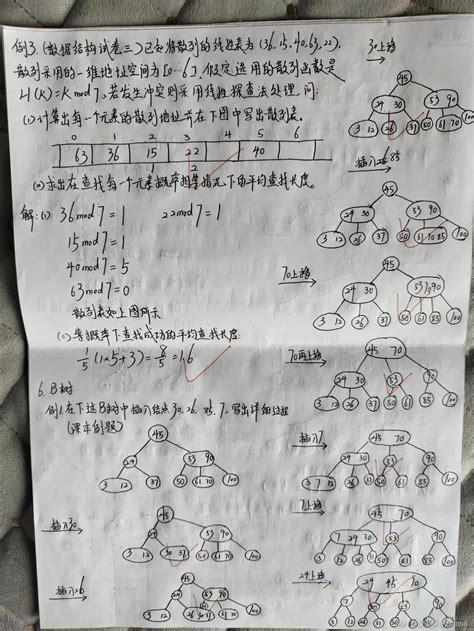 例3.(数据结构试卷三)已知待散列的线性表为(36,15,40,63,22),
散列采用的一维地址空间为[0…6],假定选用的散列函数是
H(K)=K mod 7,若发生冲突则采用线性探查法处理,问:
(1)计算出每一个元素的散列地址并在下图中写出散列表。
0 1 2 3 4 5 6
63 36 15 22 40
1 2
(2)求出在查找每一个元素概率相等情况下的平均查找长度。
解:(1) 36 mod 7 = 1 22 mod 7 = 1
15 mod 7 = 1
40 mod 7 = 5
63 mod 7 = 0
散列表如上图所示
(2)等概率下查找成功的平均查找长度:
1/5 (1×5+3) = 8/5 = 1.6
6. B树
例1.在下述B树中插入结点30,26,85,7,写出详细过程
(课本例题)
45
24 53 90
3 12 37 50 61 70 100
插入30
45
24 53 90
3 12 30 37 50 61 70 100
插入26
45
24 53 90
3 12 50 61 70 100
30上移
45
24 30 53 90
3 12 26 37 50 61 70 100
插入85
45
24 30 53 90
3 12 26 37 50 61 70 85 100
70上移
45
24 30 53 70 90
3 12 26 37 50 61 85 100
70再上移
45 70
24 30 53 90
3 12 26 37 50 61 85 100
插入7
45 70
24 30 53 90
3 7 12 26 37 50 61 85 100
7上移
45 70
7 24 30 53 90
3 12 26 37 50 61 85 100
24上移
24 45 70
7 30 53 90
3 12 26 37 50 61 85 100